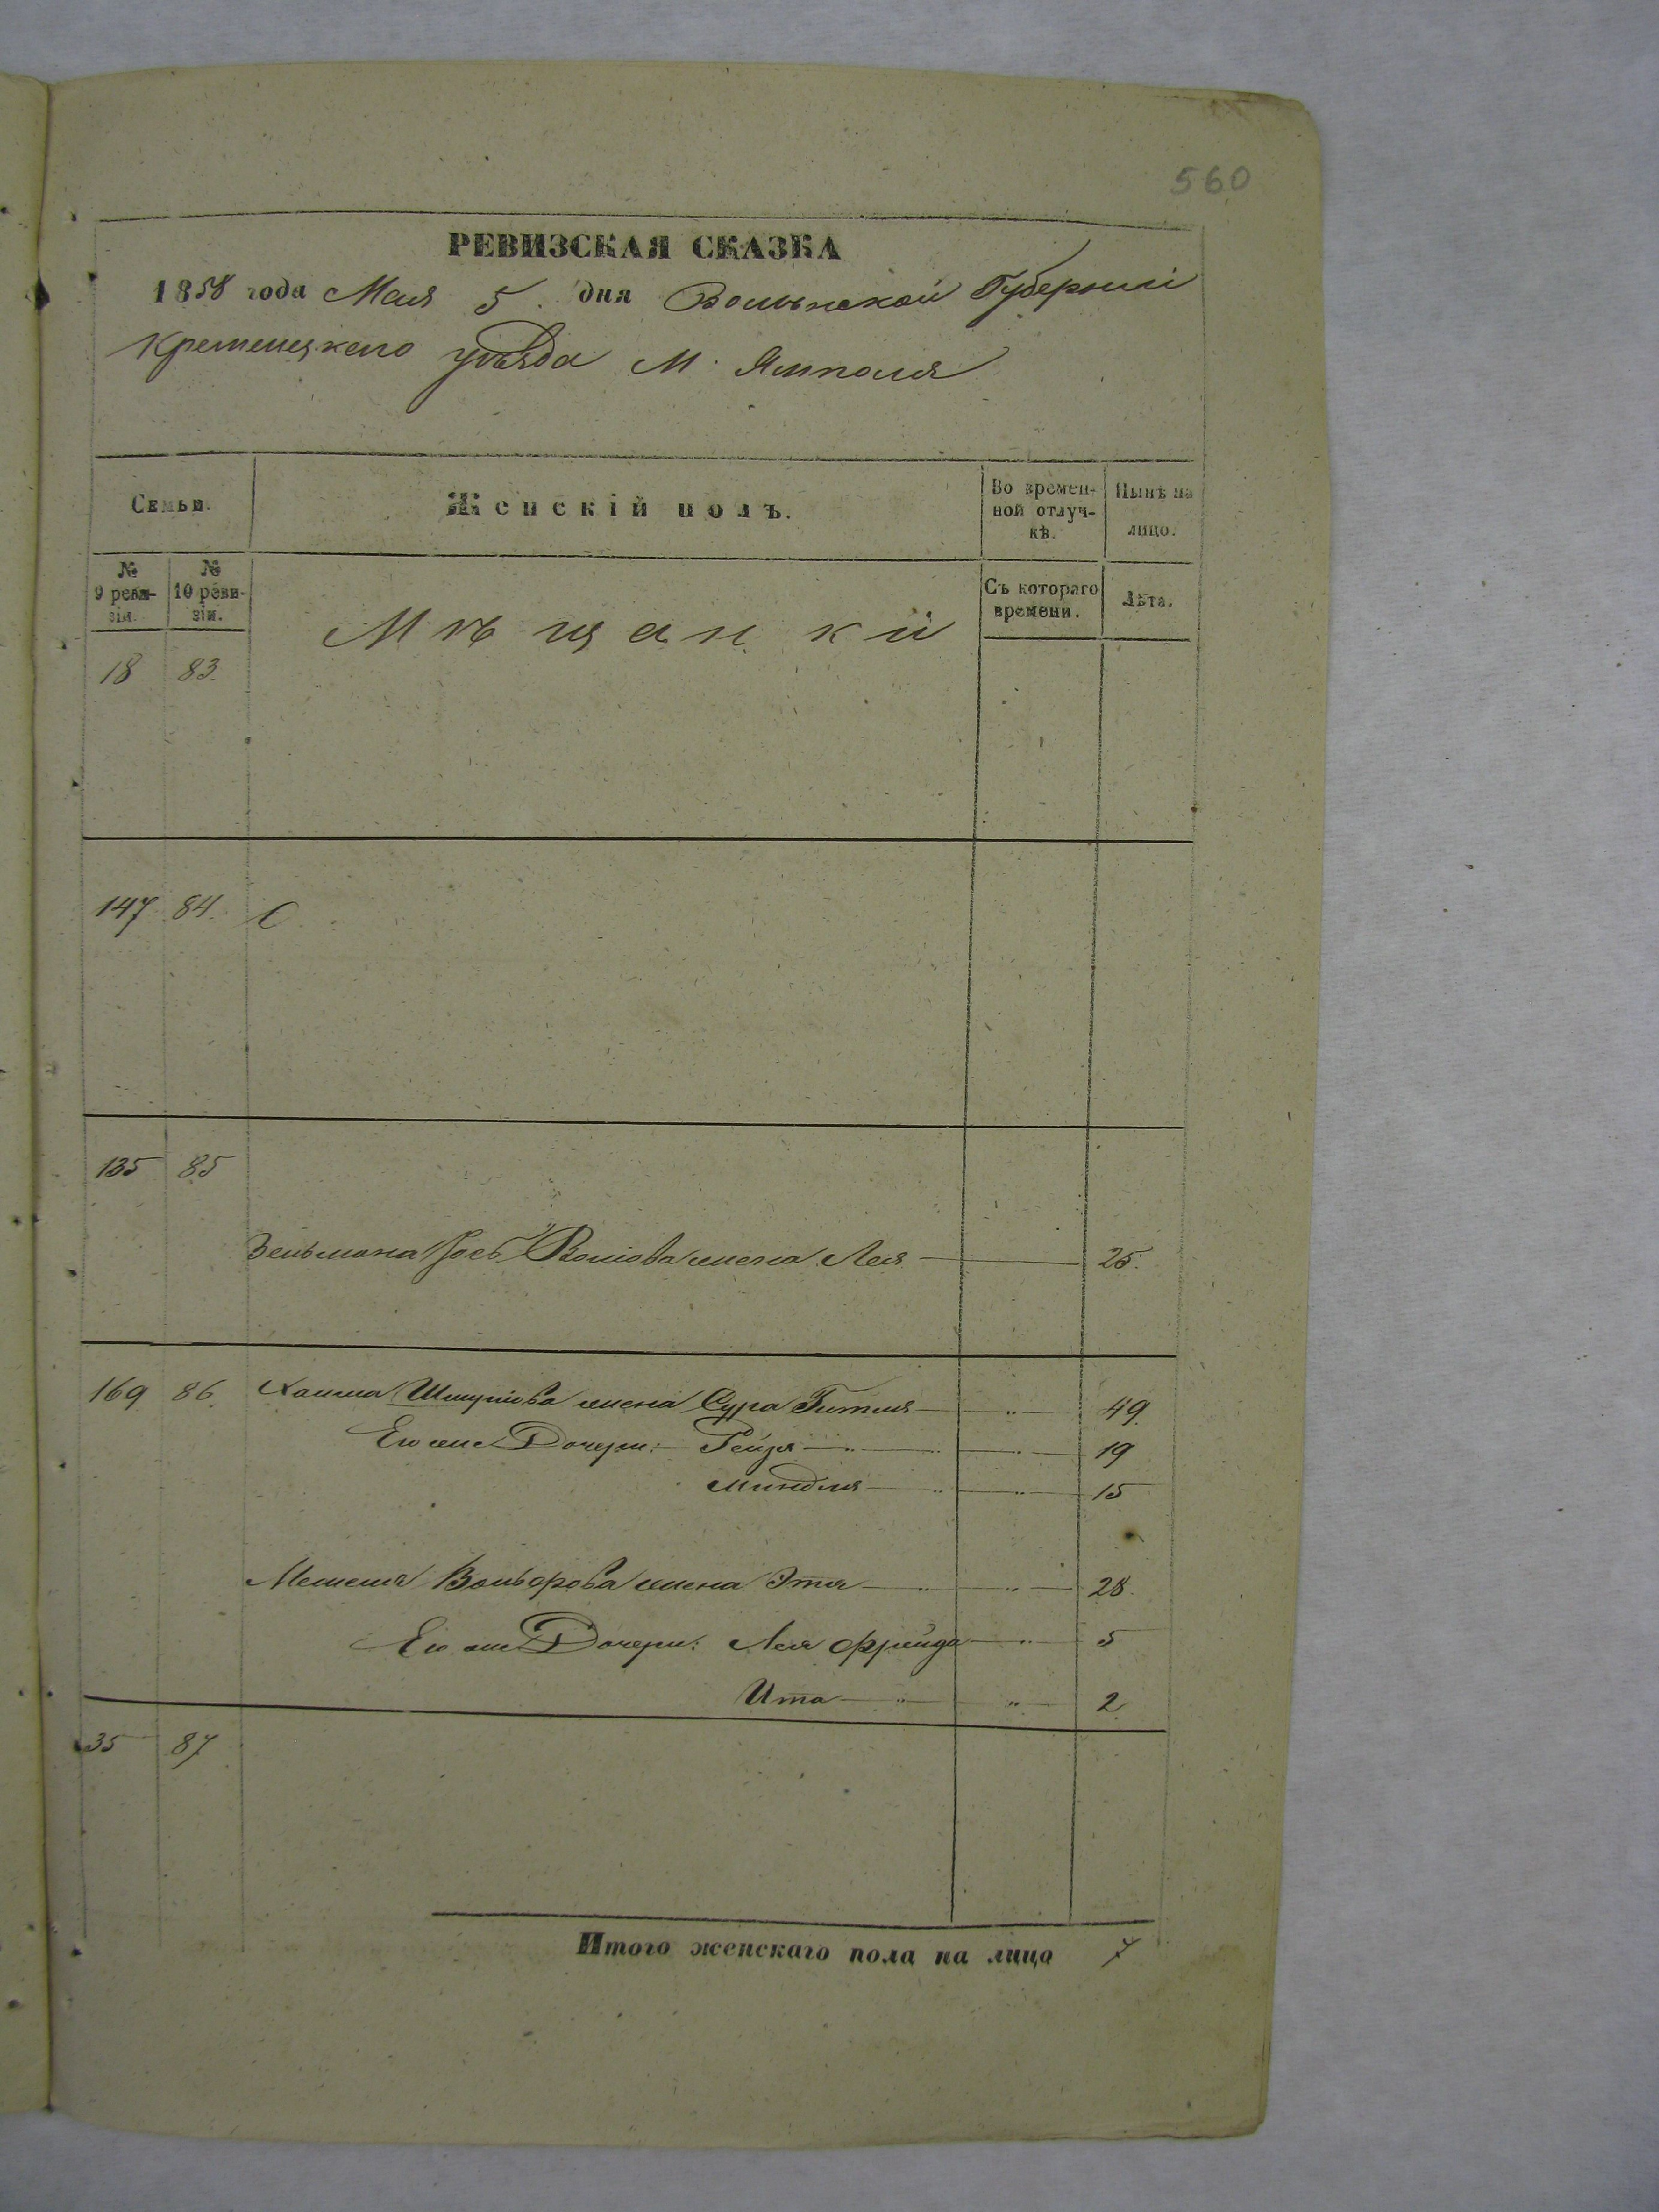 560
РЕВИЗСКАЯ СКАЗКА
1858 года Мая 5. дня Волынской Губерніи
Кременецкаго уѣзда М. Ямполя
Семьи.
Женскій полъ.
Во времен-
ной отлуч-
кѣ.
Нынѣ на
лицо.
№
9 реви-
зіи.
№
10 реви-
зіи.
Мѣщанки
Съ котораго
времени.
Лѣта.
18 83.
147 84. С
135 85
Зельмана Іось Волпова жена Лея 25.
169 86. Хаима Шмулiова жена Сура Гитля 49.
Его же Дочери: Рейзя 19
Миндля 15
Мошка Вольфова жена Этя 28.
Его же Дочери: Лея Фрейда 5
Ита 2
35 87
Итого женскаго пола на лицо 7